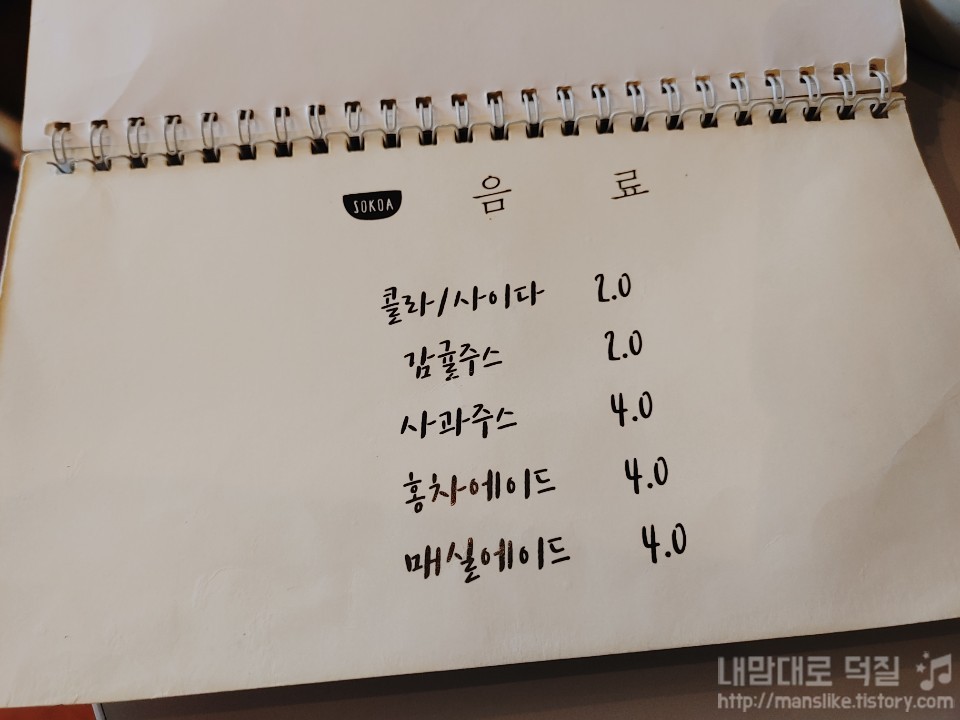 SOKOA 음 료
콜라/사이다 2.0
감귤주스 2.0
사과주스 4.0
홍차에이드 4.0
매실에이드 4.0
내맘대로 덕질
http://manslike.tistory.com